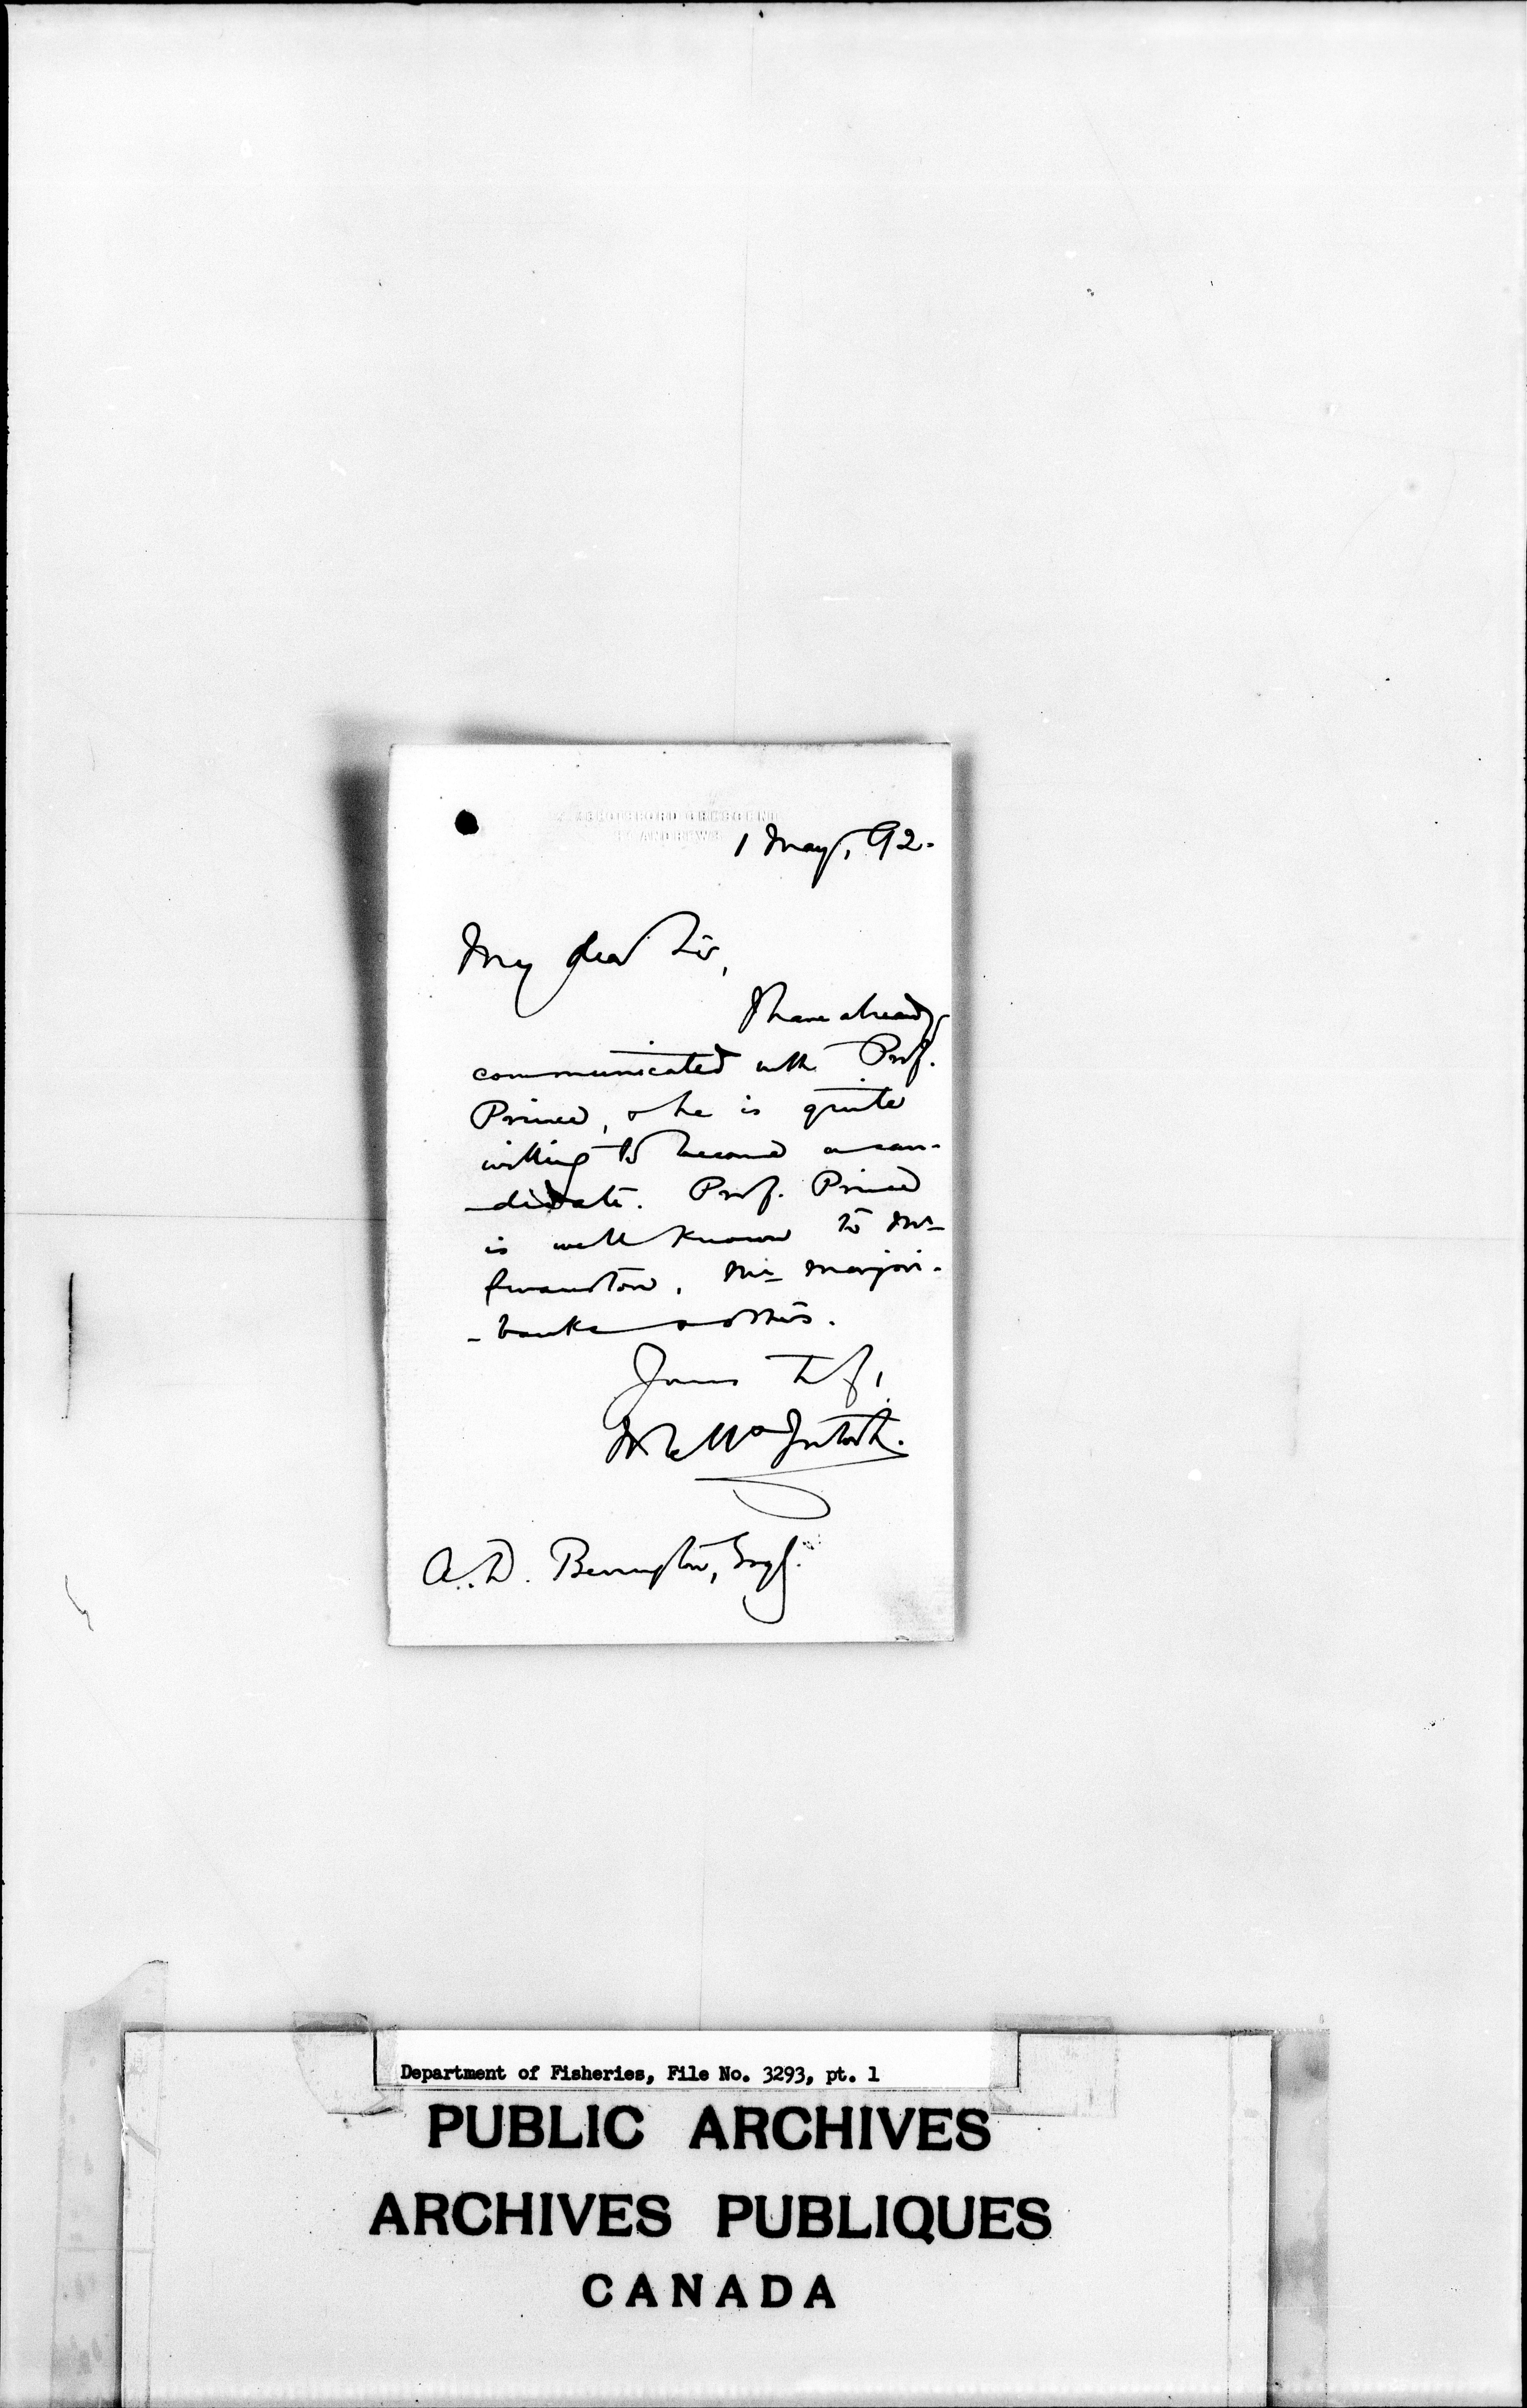 2 ABBOTSFORD CRESCENT
ST ANDREWS
1 May, 92.
My dear Sir,
I have already
communicated with Prof.
Prince, & he is quite
willing to become a can-
-didate. Prof. Prince
is well known to Mr
Swanston, Mr Marjori-
-banks & others.
Yours t f,
W C McIntosh.
A. D. Berrington, Esq.
Department of Fisheries, File No. 3293, pt. 1
PUBLIC ARCHIVES
ARCHIVES PUBLIQUES
CANADA